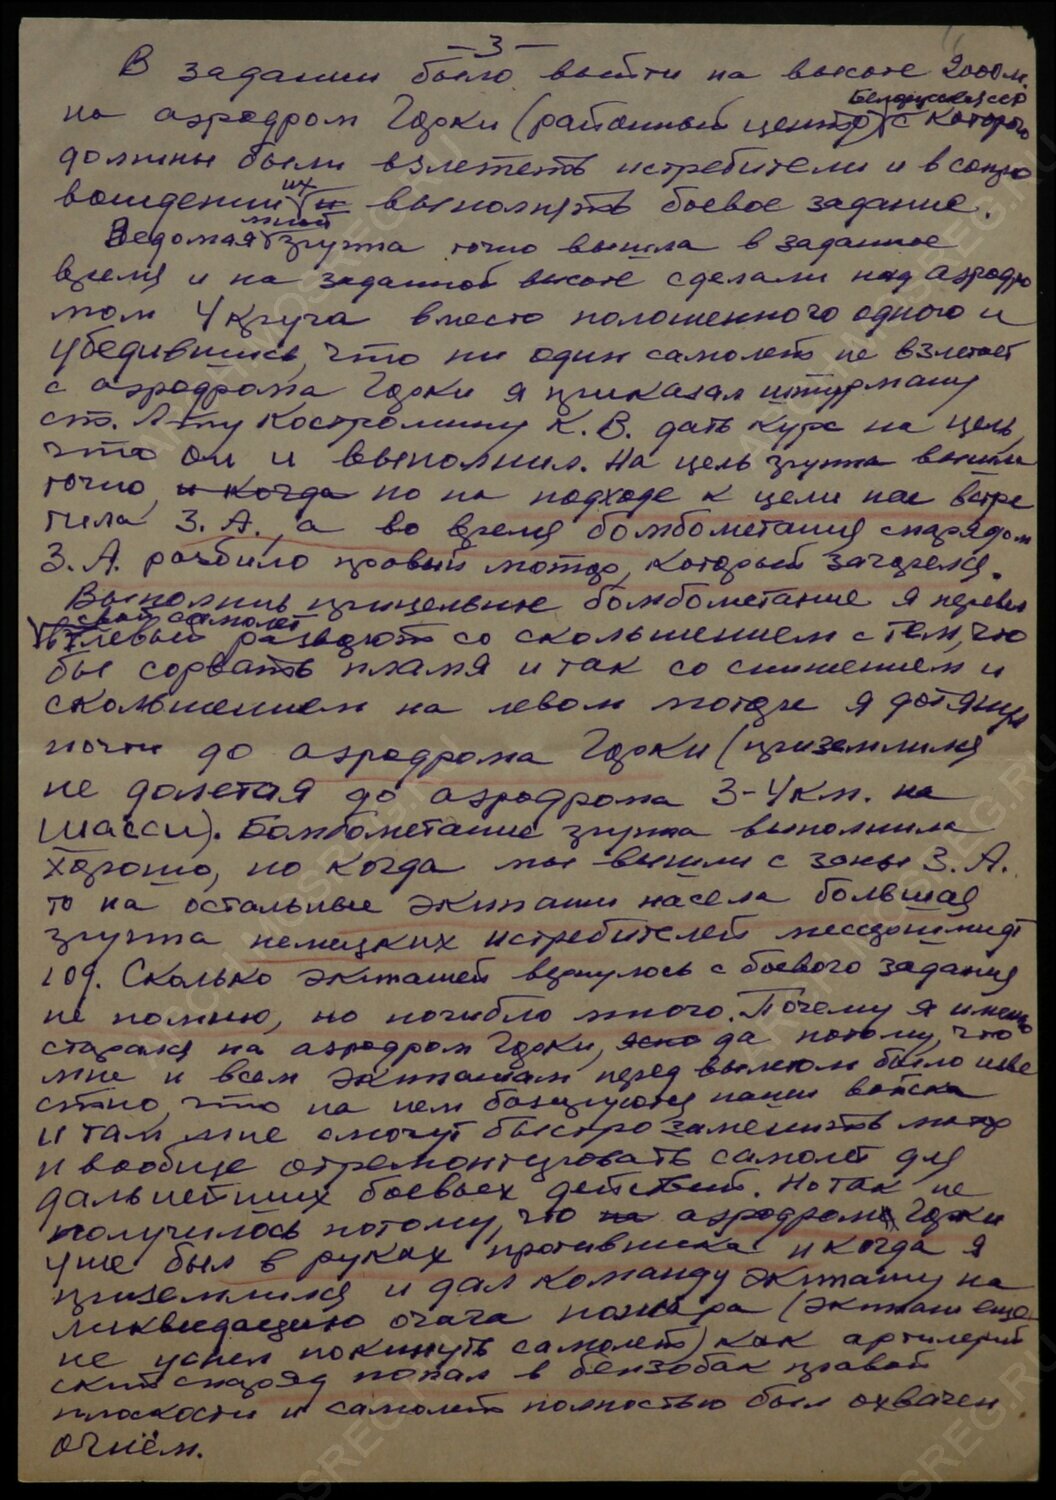 – 3 –
В задании было выйти на высоте 2000 м.
Белорусская ССР
на аэродром Горки (районный центр) с которого
должны были взлететь истребители и в сопро
их
вождении и выполнить боевое задание.
мной
Ведомая группа точно вышла в заданное
время и на заданной высоте сделали над аэродро
мом 4 круга вместо положенного одного и
убедившись, что ни один самолет не взлетает
с аэродрома Горки я приказал штурману
ст. Л-ту Костромину К. В. дать курс на цель,
что он и выполнил. На цель группа вышла
точно, и когда но на подходе к цели нас встре
тила З. А., а во время бомбометания снарядом
З. А. разбило правый мотор, который загорелся.
Выполнив прицельное бомбометание я перевел
свой самолет
в левый разворот со скольжением с тем, что
бы сорвать пламя и так со снижением и
скольжением на левом моторе я дотянул
почти до аэродрома Горки (приземлился
не долетая до аэродрома 3-4 км. на
шасси). Бомбометание группа выполнила
хорошо, но когда мы вышли с зоны З. А.
то на остальные экипажи насела большая
группа немецких истребителей мессершмидт
109. Сколько экипажей вернулось с боевого задания
не помню, но погибло много. Почему я именно
старался на аэродром Горки, да потому, что
мне и всем экипажам перед вылетом было изве
стно, что на нем базируются наши войска
и там мне смогут быстро заменить мотор
и вообще отремонтировать самолет для
дальнейших боевых действий. Но так не
получилось потому, что на аэродром Горки
уже был в руках противника и когда я
приземлился и дал команду экипажу на
ликвидацию очага пожара (экипаж еще
не успел покинуть самолет) как артилерий
ский снаряд попал в бензобак правой
плоскости и самолет полностью был охвачен
огнём.